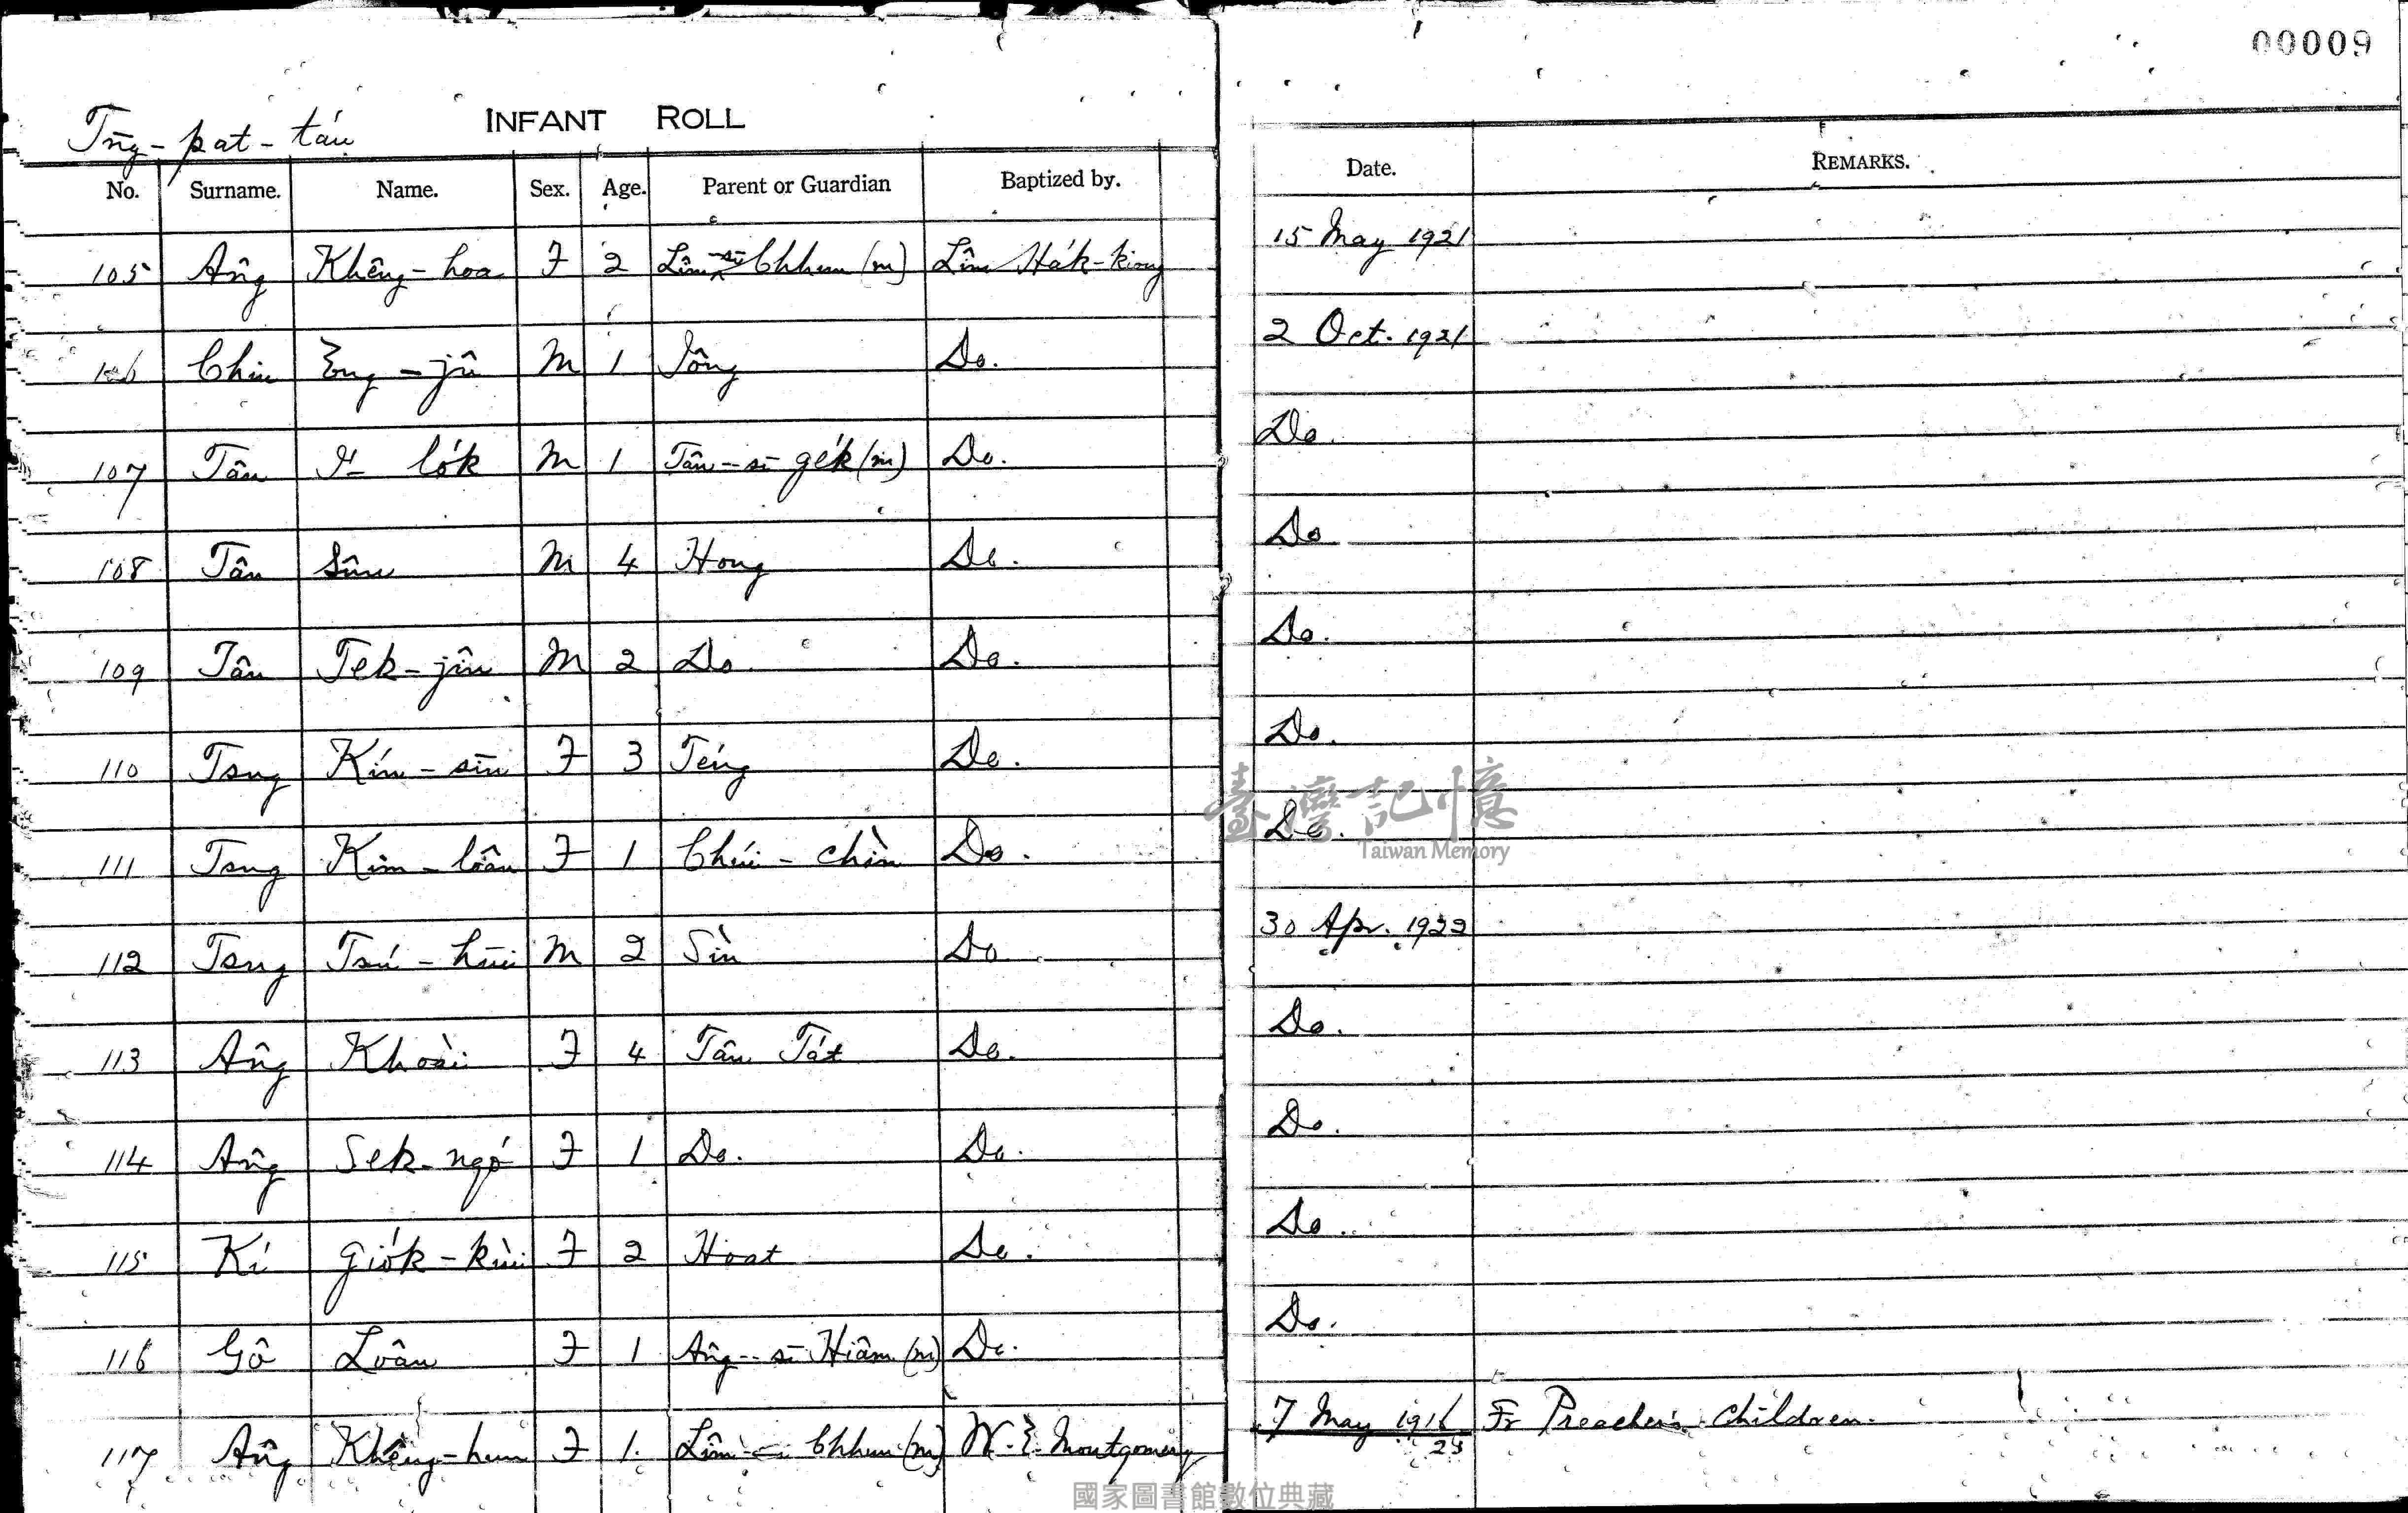 00009
Tn̄g-pat-táu
INFANT ROLL
No. Surname. Name. Sex. Age. Parent or Guardian Baptized by. Date. REMARKS.
105 Âng Khêng-hoa F 2 Lîm-sī Chhun (m) Lîm Ha̍k-kiong 15 May 1921
106 Chiu Eng-jû M 1 Iông Do. 2 Oct. 1921
107 Tân lo̍k M 1 Tân-sī ge̍k (m) Do. Do
108 Tân Sûn M 4 Hong Do. Do
109 Tân Tek-jîn M 2 Do. Do. Do.
110 Tsng Kím-sīn F 3 Téng Do. Do.
111 Tsng Kim-loân F 1 Chúi-chìn Do. Do.
112 Tsng Tsú-hūi M 2 Sìn Do 30 Apr. 1922
113 Âng Khoài F 4 Tân Ta̍t Do. Do.
114 Âng Sek-ngó F 1 Do. Do. Do.
115 Kí Gio̍k-kùi F 2 Hoat Do. Do.
116 Gô Loân F 1 Âng-sī Hiâm (m) Do. Do.
117 Âng Khêng-hun F 1 Lîm Chhun (m) W. E. Montgomery 7 May 1916 Fr Preacher's Children.
23
臺灣記憶
Taiwan Memory
國家圖書館數位典藏